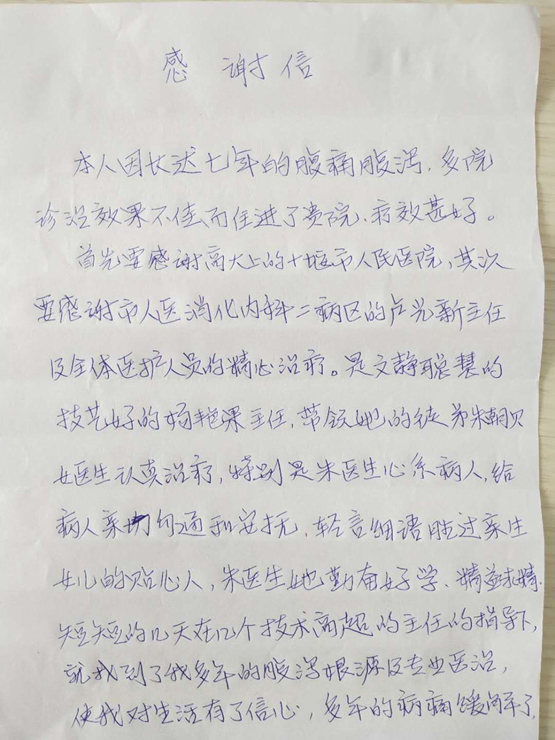 感谢信
本人因长达七年的腹痛腹泻，多院
诊治效果不佳而住进了贵院，疗效甚好。
首先要感谢高大上的十堰市人民医院，其次
要感谢市人医消化内科二病区的卢光新主任
及全体医护人员的精心治疗。是文静聪慧的
技艺好的杨艳果主任，带领她的徒弟朱朝贝
女医生认真治疗，特别是朱医生心系病人，给
病人亲切勾通和安抚，轻言细语胜过亲生
女儿的贴心人，朱医生她勤奋好学、精益求精。
短短的几天在几个技术高超的主任的指导下，
就找到了我多年的腹泻根源及专业医治，
使我对生活有了信心，多年的病痛缓解了，